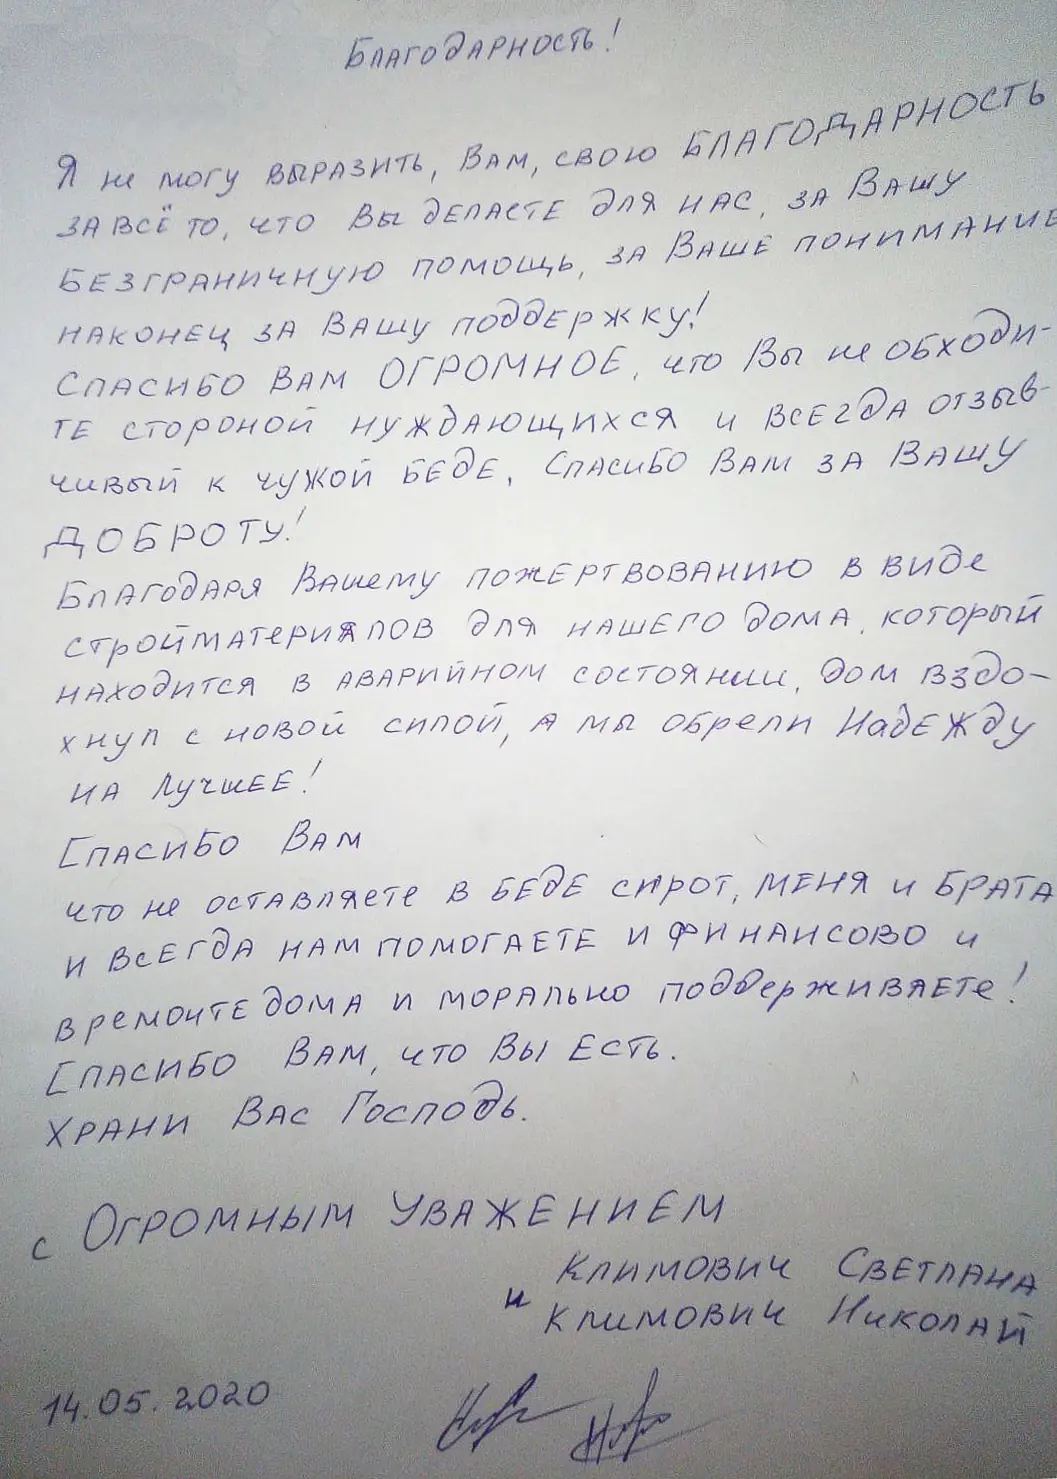 Благодарность!
Я не могу выразить, Вам, свою БЛАГОДАРНОСТЬ
за всё то, что Вы делаете для нас, за Вашу
безграничную помощь, за Ваше понимание
наконец за Вашу поддержку!
Спасибо Вам ОГРОМНОЕ, что Вы не обходи-
те стороной нуждающихся и всегда отзыв-
чивый к чужой беде, Спасибо Вам за Вашу
ДОБРОТУ!
Благодаря Вашему пожертвованию в виде
стройматериялов для нашего дома, который
находится в аварийном состоянии, дом вздо-
хнул с новой силой, а мы обрели Надежду
на Лучшее!
Спасибо Вам
что не оставляете в беде сирот, меня и брата
и всегда нам помогаете и финансово и
в ремонте дома и морально поддерживаете!
Спасибо Вам, что Вы Есть.
Храни Вас Господь.
с Огромным уважением
Климович Светлана
и Климович Николай
14.05.2020